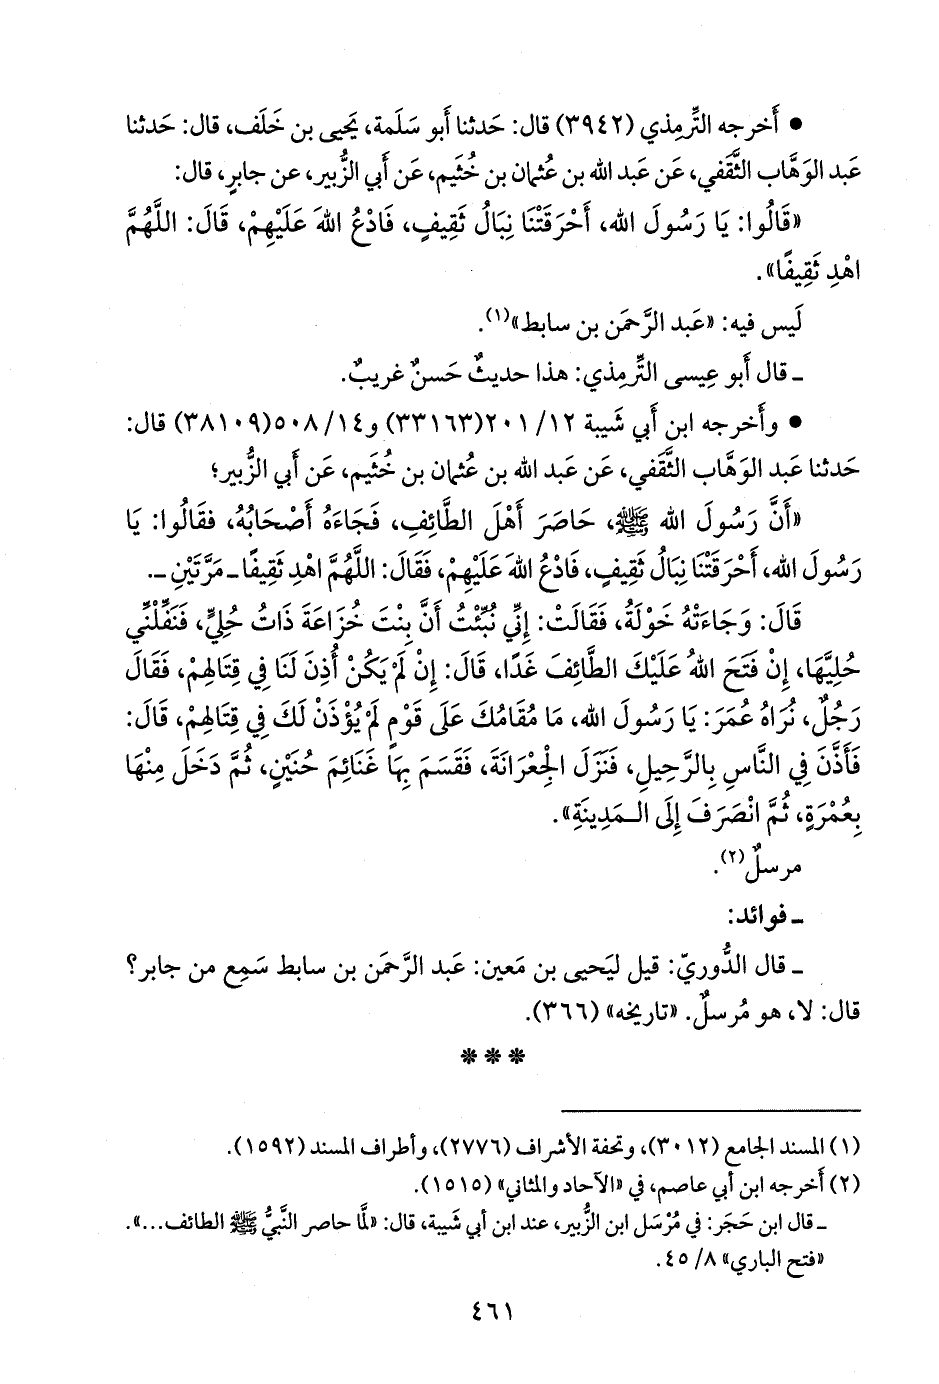 • أَخرجه التِّرمِذي (٣٩٤٢) قال: حَدثنا أَبو سَلَمة، يَحيى بن خَلَف، قال: حَدثنا
عَبد الوَهَّاب الثَّقَفي، عَن عَبد الله بن عُثمان بن خُثَيم، عَن أَبي الزُّبير، عن جابرٍ، قال:
«قَالُوا: يَا رَسُولَ الله، أَحْرَقَتْنَا نِبَالُ ثَقِيفٍ، فَادْعُ اللهَ عَلَيْهِمْ، قَالَ: اللَّهُمَّ
اهْدِ ثَقِيفًا».
لَيس فيه: «عَبد الرَّحمَن بن سابط»(١).
ـ قال أَبو عِيسى التِّرمِذي: هذا حديثٌ حَسنٌ غريبٌ.
• وأَخرجه ابن أَبي شَيبة ١٢/ ٢٠١(٣٣١٦٣) و١٤/ ٥٠٨(٣٨١٠٩) قال:
حَدثنا عَبد الوَهَّاب الثَّقَفي، عَن عَبد الله بن عُثمان بن خُثَيم، عَن أَبي الزُّبير؛
«أَنَّ رَسُولَ الله ﷺ، حَاصَرَ أَهْلَ الطَّائِفِ، فَجَاءَهُ أَصْحَابُهُ، فقَالُوا: يَا
رَسُولَ الله، أَحْرَقَتْنَا نِبَالُ ثَقِيفٍ، فَادْعُ اللهَ عَلَيْهِمْ، فَقَالَ: اللَّهُمَّ اهْدِ ثَقِيفًا ـ مَرَّتَيْنِ ـ.
قَالَ: وَجَاءَتْهُ خَوْلَةُ، فَقَالَتْ: إِنِّي نُبِّئْتُ أَنَّ بِنْتَ خُزَاعَةَ ذَاتُ حُلِيٍّ، فَنَفِّلْنِي
حُلِيَّهَا، إِنْ فَتَحَ اللهُ عَلَيْكَ الطَّائِفَ غَدًا، قَالَ: إِنْ لَمْ يَكُنْ أُذِنَ لَنَا فِي قِتَالِهِمْ، فَقَالَ
رَجُلٌ، نُرَاهُ عُمَرَ: يَا رَسُولَ الله، مَا مُقَامُكَ عَلَى قَوْمٍ لَمْ يُؤْذَنْ لَكَ فِي قِتَالِهِمْ، قَالَ:
فَأَذَّنَ فِي النَّاسِ بِالرَّحِيلِ، فَنَزَلَ الْجِعْرَانَةَ، فَقَسَمَ بِهَا غَنَائِمَ حُنَيْنٍ، ثُمَّ دَخَلَ مِنْهَا
بِعُمْرَةٍ، ثُمَّ انْصَرَفَ إِلَى الـمَدِينَةِ».
مرسلٌ(٢).
ـ فوائد:
ـ قال الدُّوريّ: قيل ليَحيى بن مَعين: عَبد الرَّحمَن بن سابط سَمِع من جابر؟
قال: لا، هو مُرسلٌ. «تاريخه» (٣٦٦).
* * *
(١) المسند الجامع (٣٠١٢)، وتحفة الأشراف (٢٧٧٦)، وأطراف المسند (١٥٩٢).
(٢) أَخرجه ابن أَبي عاصم، في «الآحاد والمثاني» (١٥١٥).
ـ قال ابن حَجَر: في مُرْسَل ابن الزُّبير، عند ابن أَبي شَيبة، قال: «لمَّا حاصر النَّبيُّ ﷺ الطائف...».
«فتح الباري» ٨/ ٤٥.
٤٦١